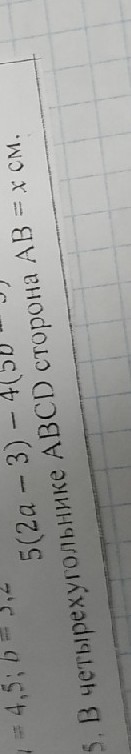 = 4,5; b = 3,2
5(2a − 3) − 4(5b −
5. В четырехугольнике ABCD сторона AB = x см.